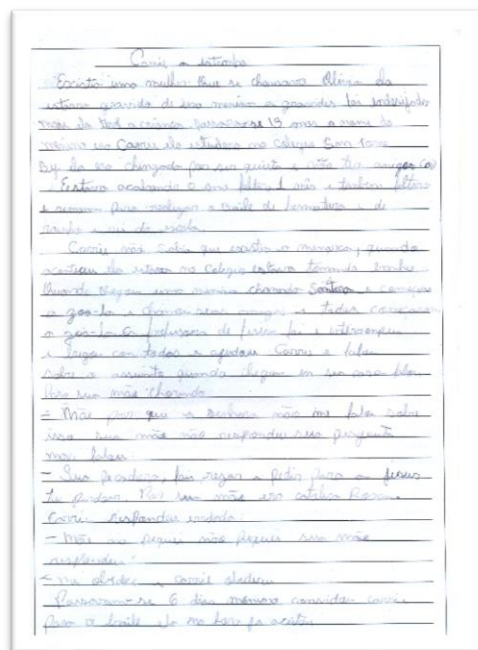 Carrie a estranha
Existia uma mulher que se chamava Olivia ela
estava gravida de uma menina a gravides foi indesejada
mais ela teve a criança passaram-se 15 anos o nome da
menina era Carrie ela estudava no colegio San
ela era chingada por ser quieta e não ter amigos
Estava acabando o ano faltava 1 mês e tanbem faltava
1 semana para realizar o baile de formatura e de
rainha e rei da escola.
Carrie não sabia que existia a menarca, quando
aconteceu ela estava no colegio estava tomando banho
Quando chegou uma menina chamada Santana e começou
a zoa-la e chamou suas amigas e todas começaram
a zoa-la a professora de foi e interrompeu
e brigou com todas e ajudou Carrie e falou
sobre o assunto quando chegou em sua casa falou
Para sua mãe chorando
= Mãe por que a senhora não me falou sobre
isso sua mãe não respondeu sua pergunta
mas falou:
- Sua pecadora, vai rezar e pedir para a Jesus
te perdoar. Pois sua mãe era catolica
Carrie respondeu
- Mãe eu pequei não sua mãe
respondeu:
- me obedece e carrie obdeceu
Passaram-se 6 dias convidou carrie
Para o baile ela aceitou